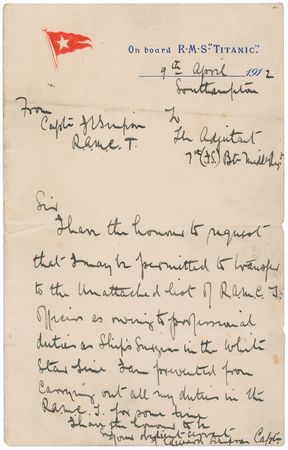 On board R·M·S "TITANIC".
9th April 1912
Southampton
From
Captn J E Simpson
R.A.M.C. T.
To
The Adjutant
7th (F.S.) Bn Middx Regt
Sir
I have the honour to request
that I may be permitted to transfer
to the Unattached list of R.A.M.C. T.
Officers as owing to professional
duties as Ship's Surgeon in the White
Star Line I am prevented from
carrying out all my duties in the
R.A.M.C. T. for some time
I have the honour to be
your obedient servant
Edward Simpson Captn